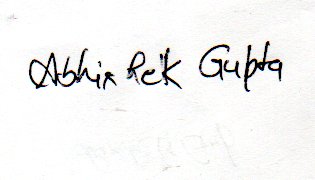 Abhishek Gupta